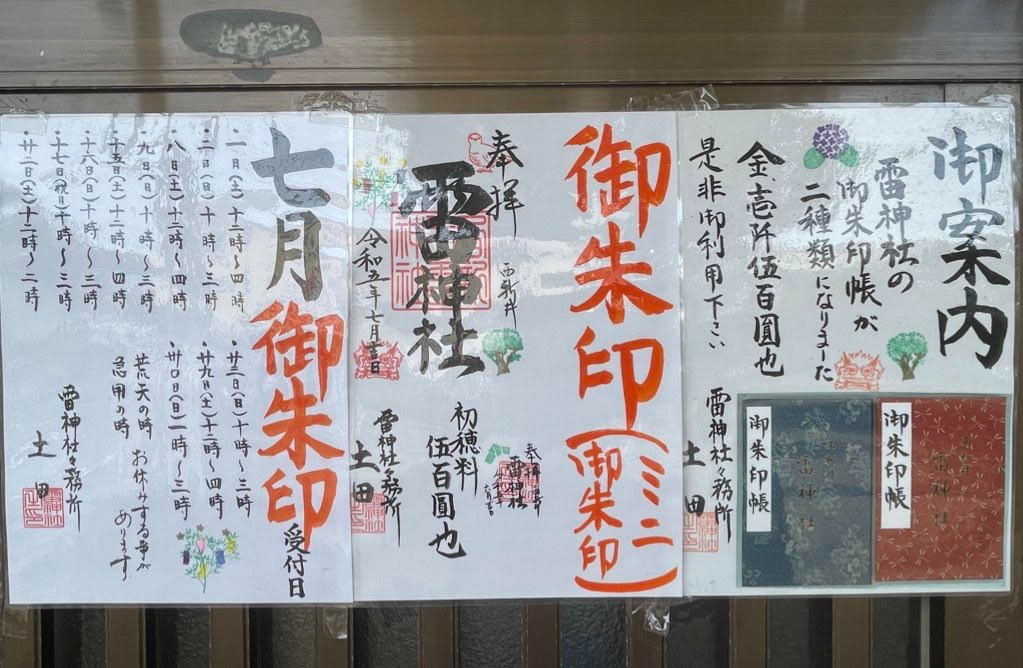 御案内
雷神社の
御朱印帳が
二種類になりました
金壱阡伍百圓也
是非御利用下さい
雷神社々務所
土田
御朱印帳
雷神社
御朱印帳
雷神社
御朱印
(ミニ御朱印)
奉拝
雷神社
令和五年七月吉日
初穂料
伍百圓也
奉拝
雷神社
雷神社々務所
土田
七月御朱印受付日
・一日(土)十二時〜四時
・二日(日)十時〜三時
・八日(土)十二時〜四時
・九日(日)十時〜三時
・十五日(土)十二時〜四時
・十六日(日)十時〜三時
・十七日(祝)十時〜三時
・廿二日(土)十二時〜二時
・廿三日(日)十時〜三時
・廿九日(土)十二時〜四時
・卅〇日(日)一時〜三時
荒天の時
急用の時
お休みする事が
あります
雷神社々務所
土田